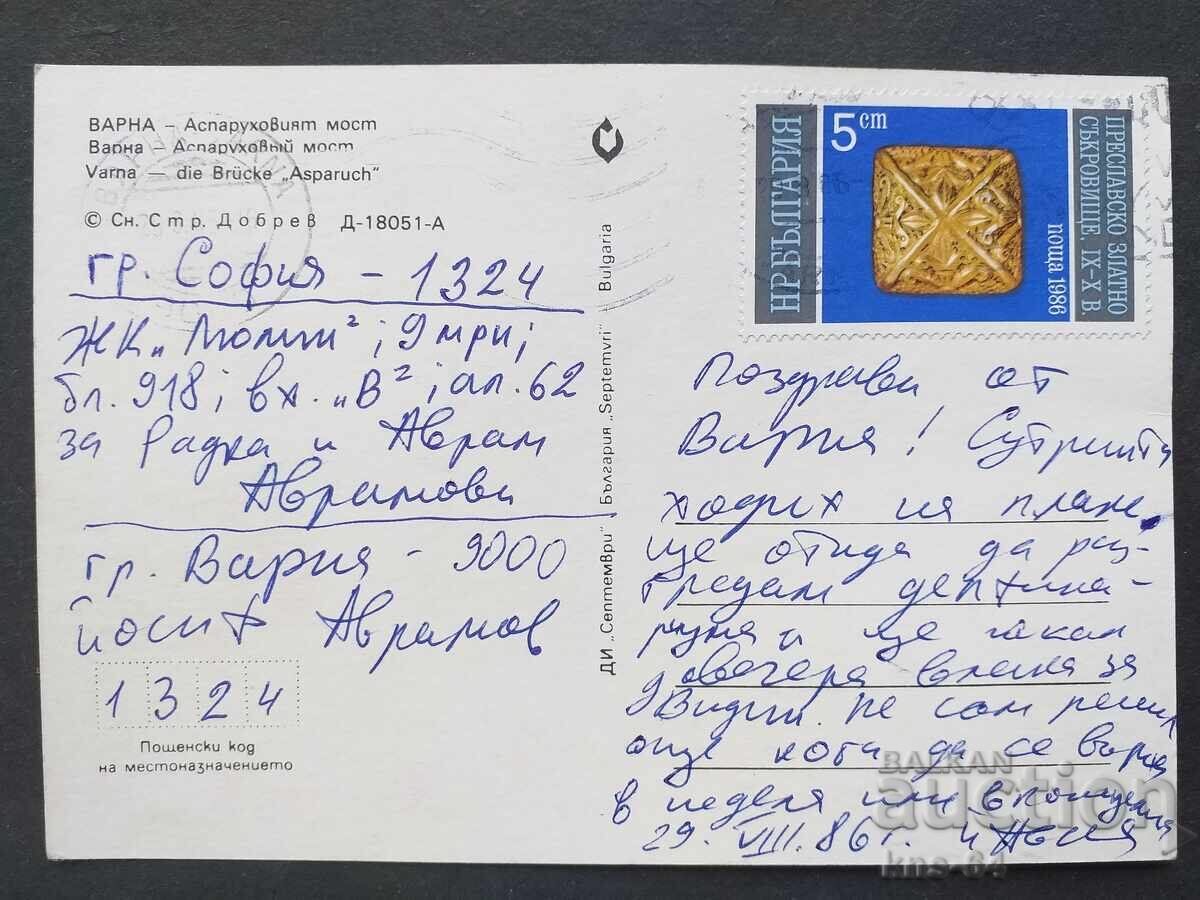 ВАРНА – Аспаруховият мост
Варна – Аспаруховый мост
Varna — die Brücke „Asparuch“
© Сн. Стр. Добрев Д-18051-А
гр. София – 1324
ЖК „Люлин“; 9 мри;
бл. 918; вх. „В“; ап. 62
за Радка и Аврам
Аврамови
гр. Варна – 9000
Йосиф Аврамов
1324
Пощенски код
на местоназначението
ДИ „Септември“ България „Septemvri“ Bulgaria
НР БЪЛГАРИЯ
5 ст
ПРЕСЛАВСКО ЗЛАТНО
СЪКРОВИЩЕ, IX-X В.
поща 1986
Поздрави от
Варна! Сутринта
ходих на плаж,
ще отида да раз-
гледам делфина-
риума и ще чакам
довечера влака за
Видин. Не съм решил
още кога да се върна
в неделя или в понеделник
29. VIII. 86 г.
BALKAN
auction
kns-64